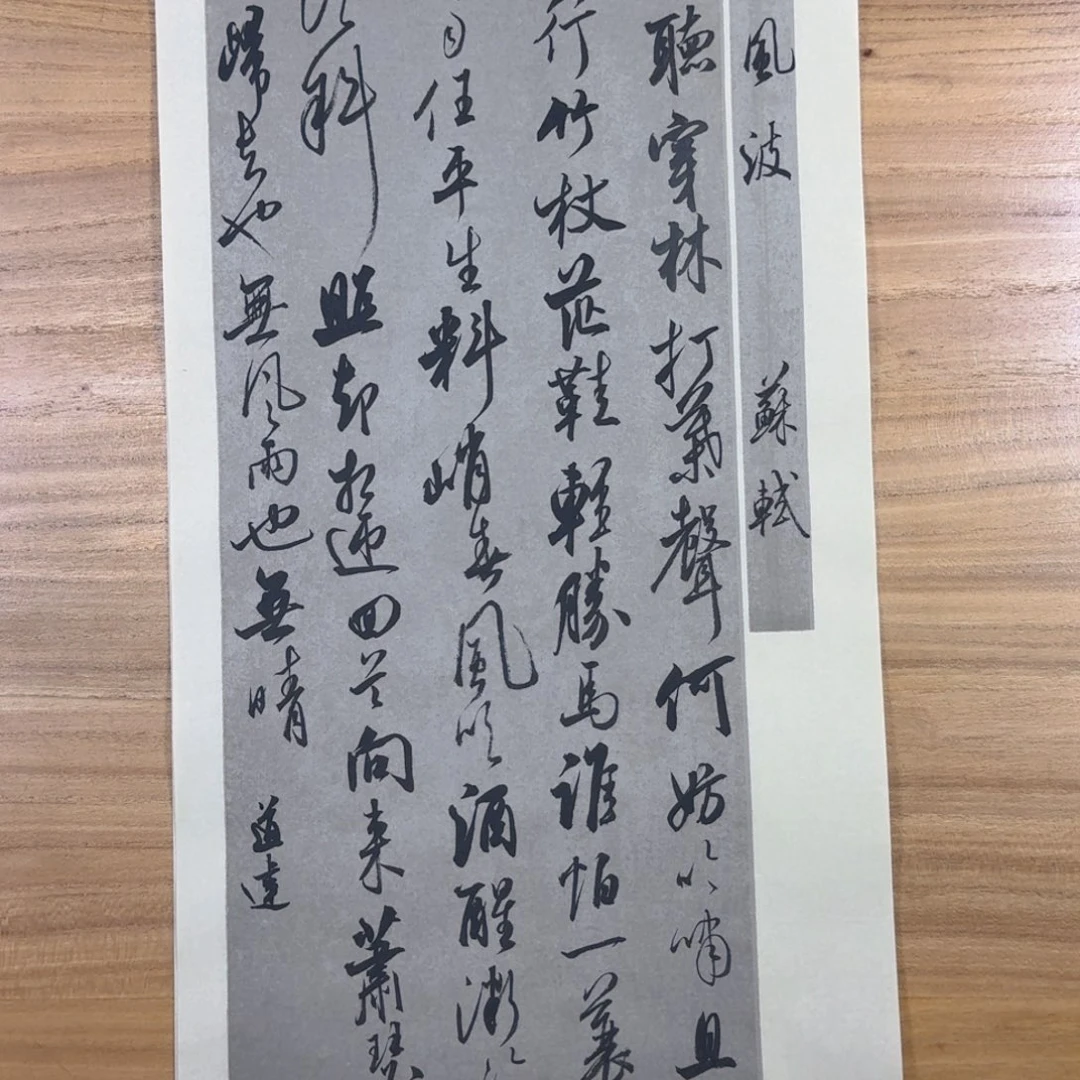 風波 蘇軾
聽穿林打葉聲何妨吟嘯且
行竹杖芒鞋輕勝馬誰怕一蓑
雨任平生料峭春風吹酒醒微
斜照却相迎回首向來蕭瑟
歸去也無風雨也無晴
道達